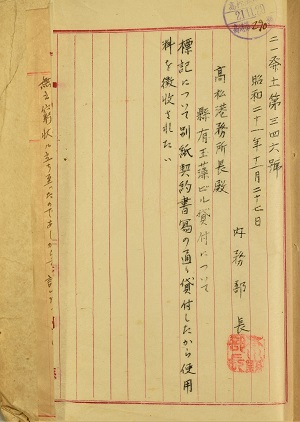 二一香土第三四六號
昭和二十一年十一月二十七日
内務部長
高松港務所長殿
縣有玉藻ビル貸付について
標記について別紙契約書寫の通り貸付したから使用
料を徴收されたい